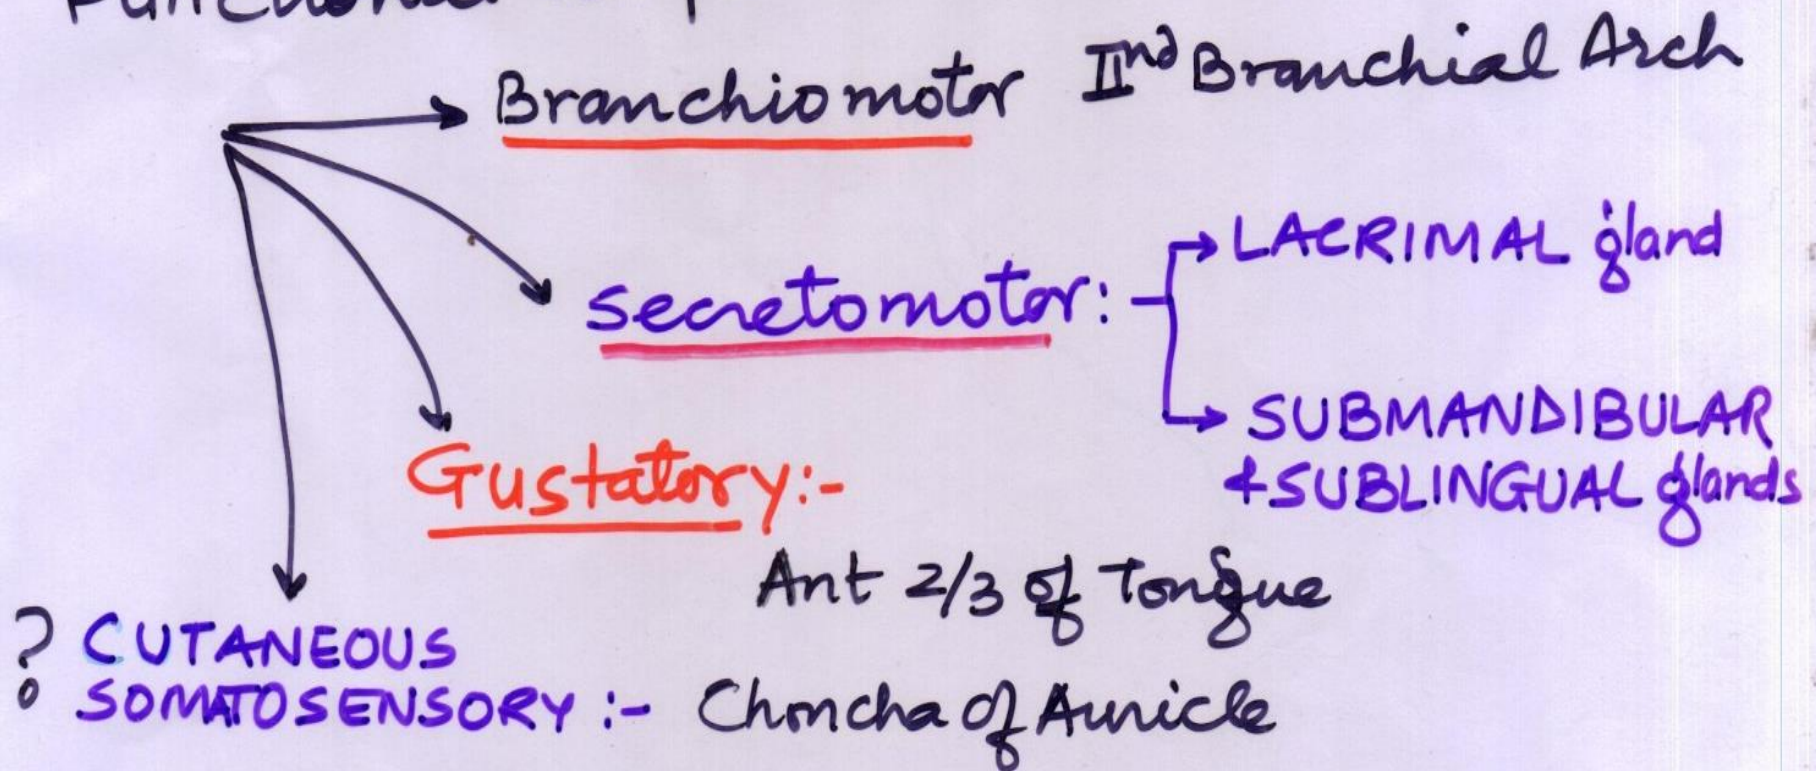 Functional
Branchiomotor IInd Branchial Arch
Secretomotor:-
LACRIMAL gland
SUBMANDIBULAR
+SUBLINGUAL glands
Gustatory:-
Ant 2/3 of Tongue
? CUTANEOUS
SOMATOSENSORY :- Choncha of Auricle